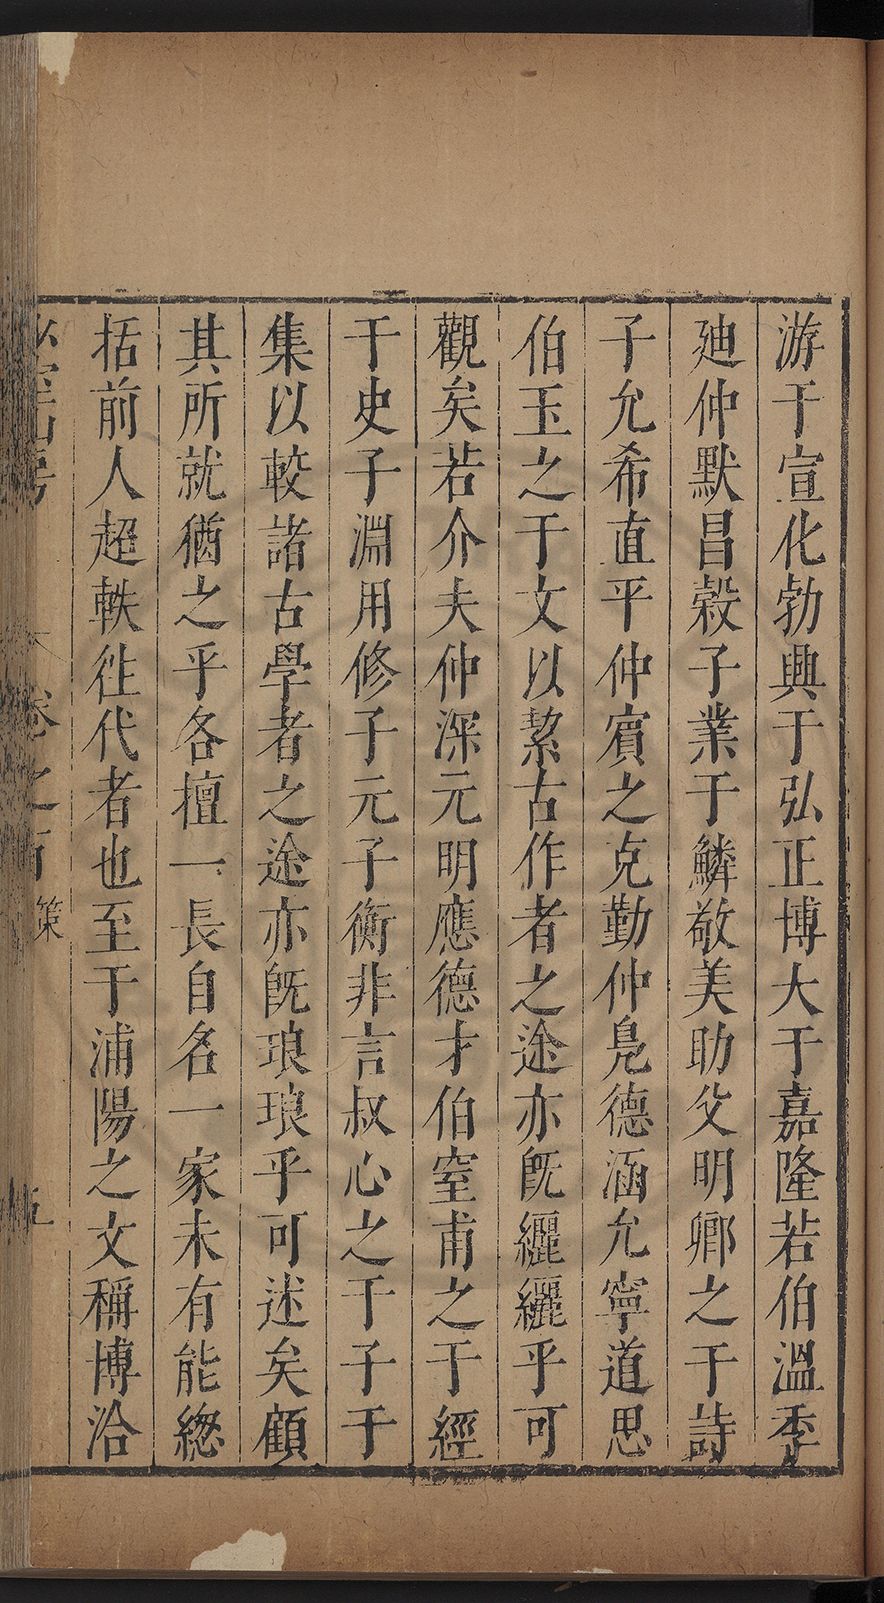 游于宣化勃興于弘正博大于嘉隆若伯溫季
廸仲默昌穀子業于鱗敬美助父明卿之于詩
子允希直平仲賓之克勤仲鳧德涵允寧道思
伯玉之于文以絜古作者之途亦旣纚纚乎可
觀矣若介夫仲深元明應德才伯窒甫之于經
于史子淵用修子元子衡非言叔心之于子于
集以較諸古學者之途亦旣琅琅乎可述矣顧
其所就猶之乎各擅一長自名一家未有能緫
括前人超軼徃代者也至于浦陽之文稱博洽
卷之百 策 五